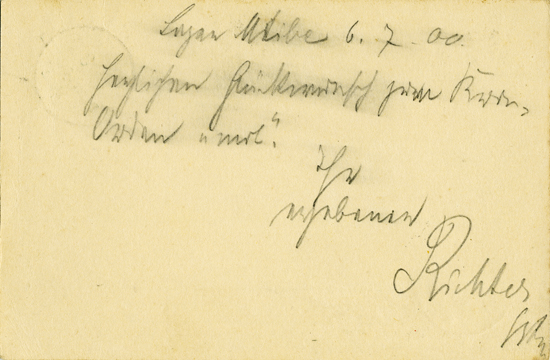 Lager 6. 7. 00.
Herzlichen Glückwunsch zum Kron-
Orden
Ihr
ergebener
Richter